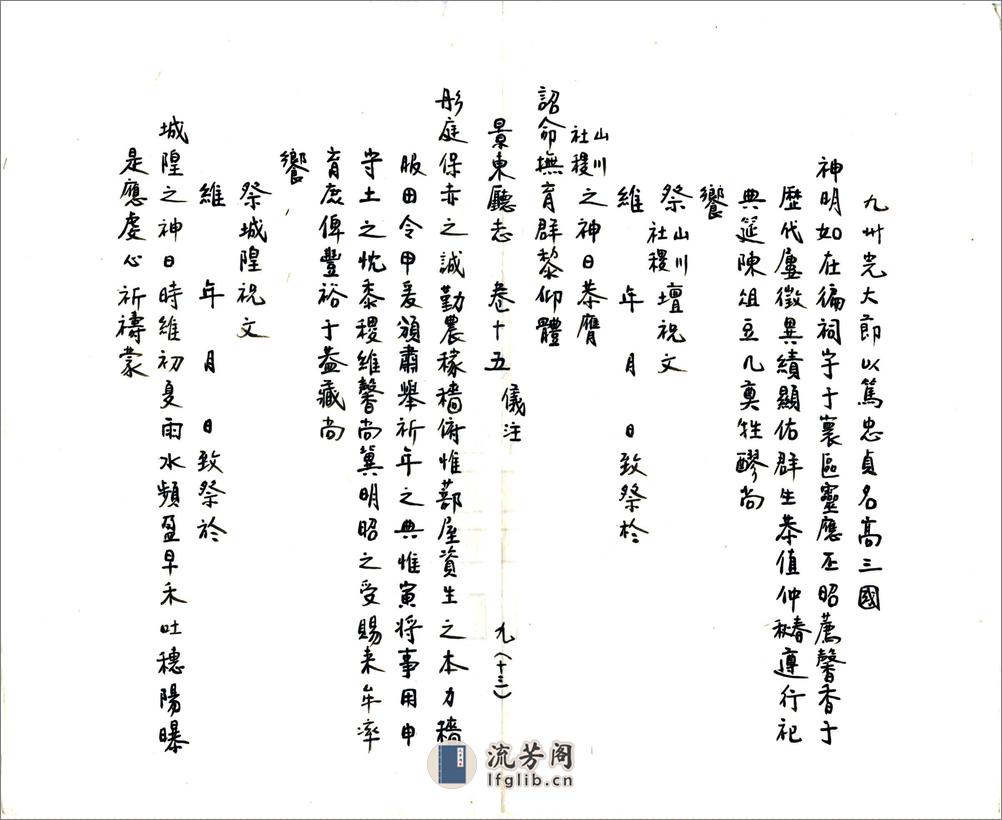 九州光大節以篤忠貞名高三國
神明如在徧祠宇于寰區靈應丕昭薦馨香于
歷代屢徵異績顯佑群生恭值仲春秋遵行祀
典筵陳俎豆几奠牲醪尚
饗
祭山川社稷壇祝文
維　年　月　日致祭於
山川社稷之神曰恭膺
詔命撫育群黎仰體
景東廳志　卷十五　儀注　九（十三）
彤庭保赤之誠勤農稼穡俯惟蔀屋資生之本力穡
服田令甲爰頒肅舉祈年之典惟寅將事用申
守土之忱黍稷維馨尚冀明昭之受賜來牟率
育庶俾豐裕于蓋藏尚
饗
祭城隍祝文
維　年　月　日致祭於
城隍之神曰時維初夏雨水頻盈早禾吐穗陽曝
是應虔心祈禱蒙
流芳阁
lfglib.cn